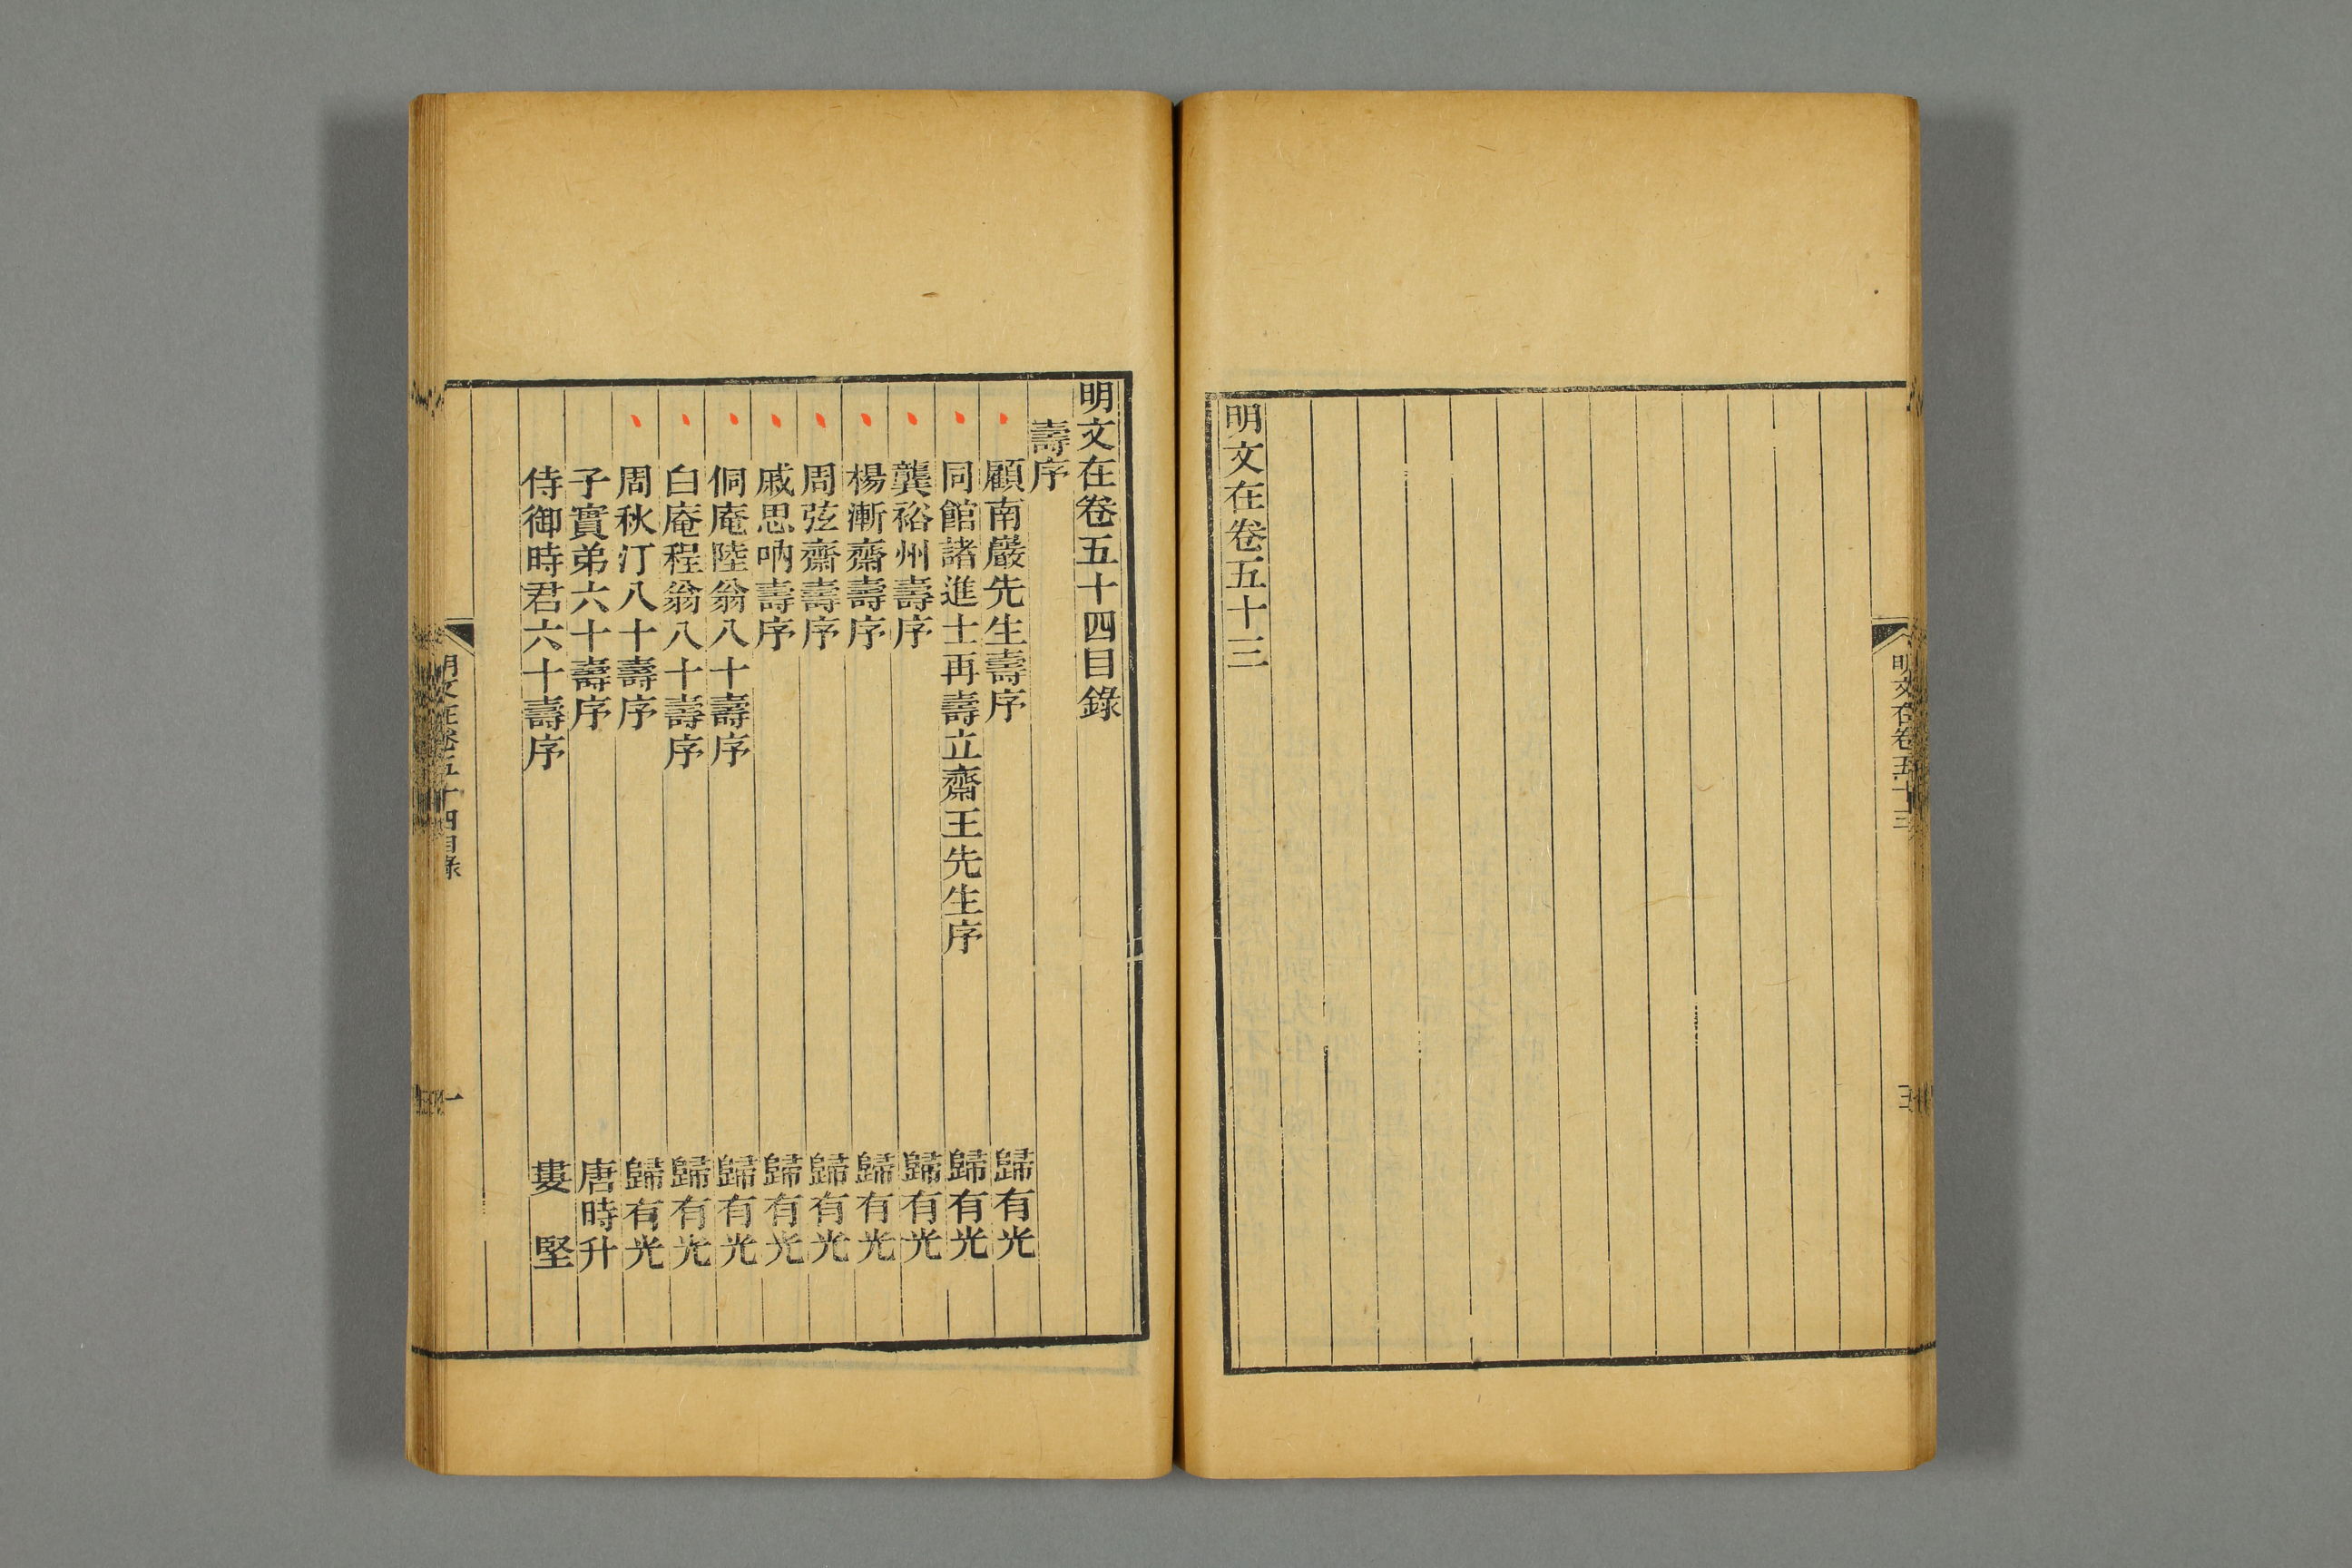 明文在卷五十三
明文在卷五十三
明文在卷五十四目錄
壽序
顧南巖先生壽序 歸有光
同館諸進士再壽立齋王先生序 歸有光
龔裕州壽序 歸有光
楊漸齋壽序 歸有光
周弦齋壽序 歸有光
戚思吶壽序 歸有光
侗庵陸翁八十壽序 歸有光
白庵程翁八十壽序 歸有光
周秋汀八十壽序 歸有光
子實弟六十壽序 唐時升
侍御時君六十壽序 婁堅
明文在卷五十四目錄
一